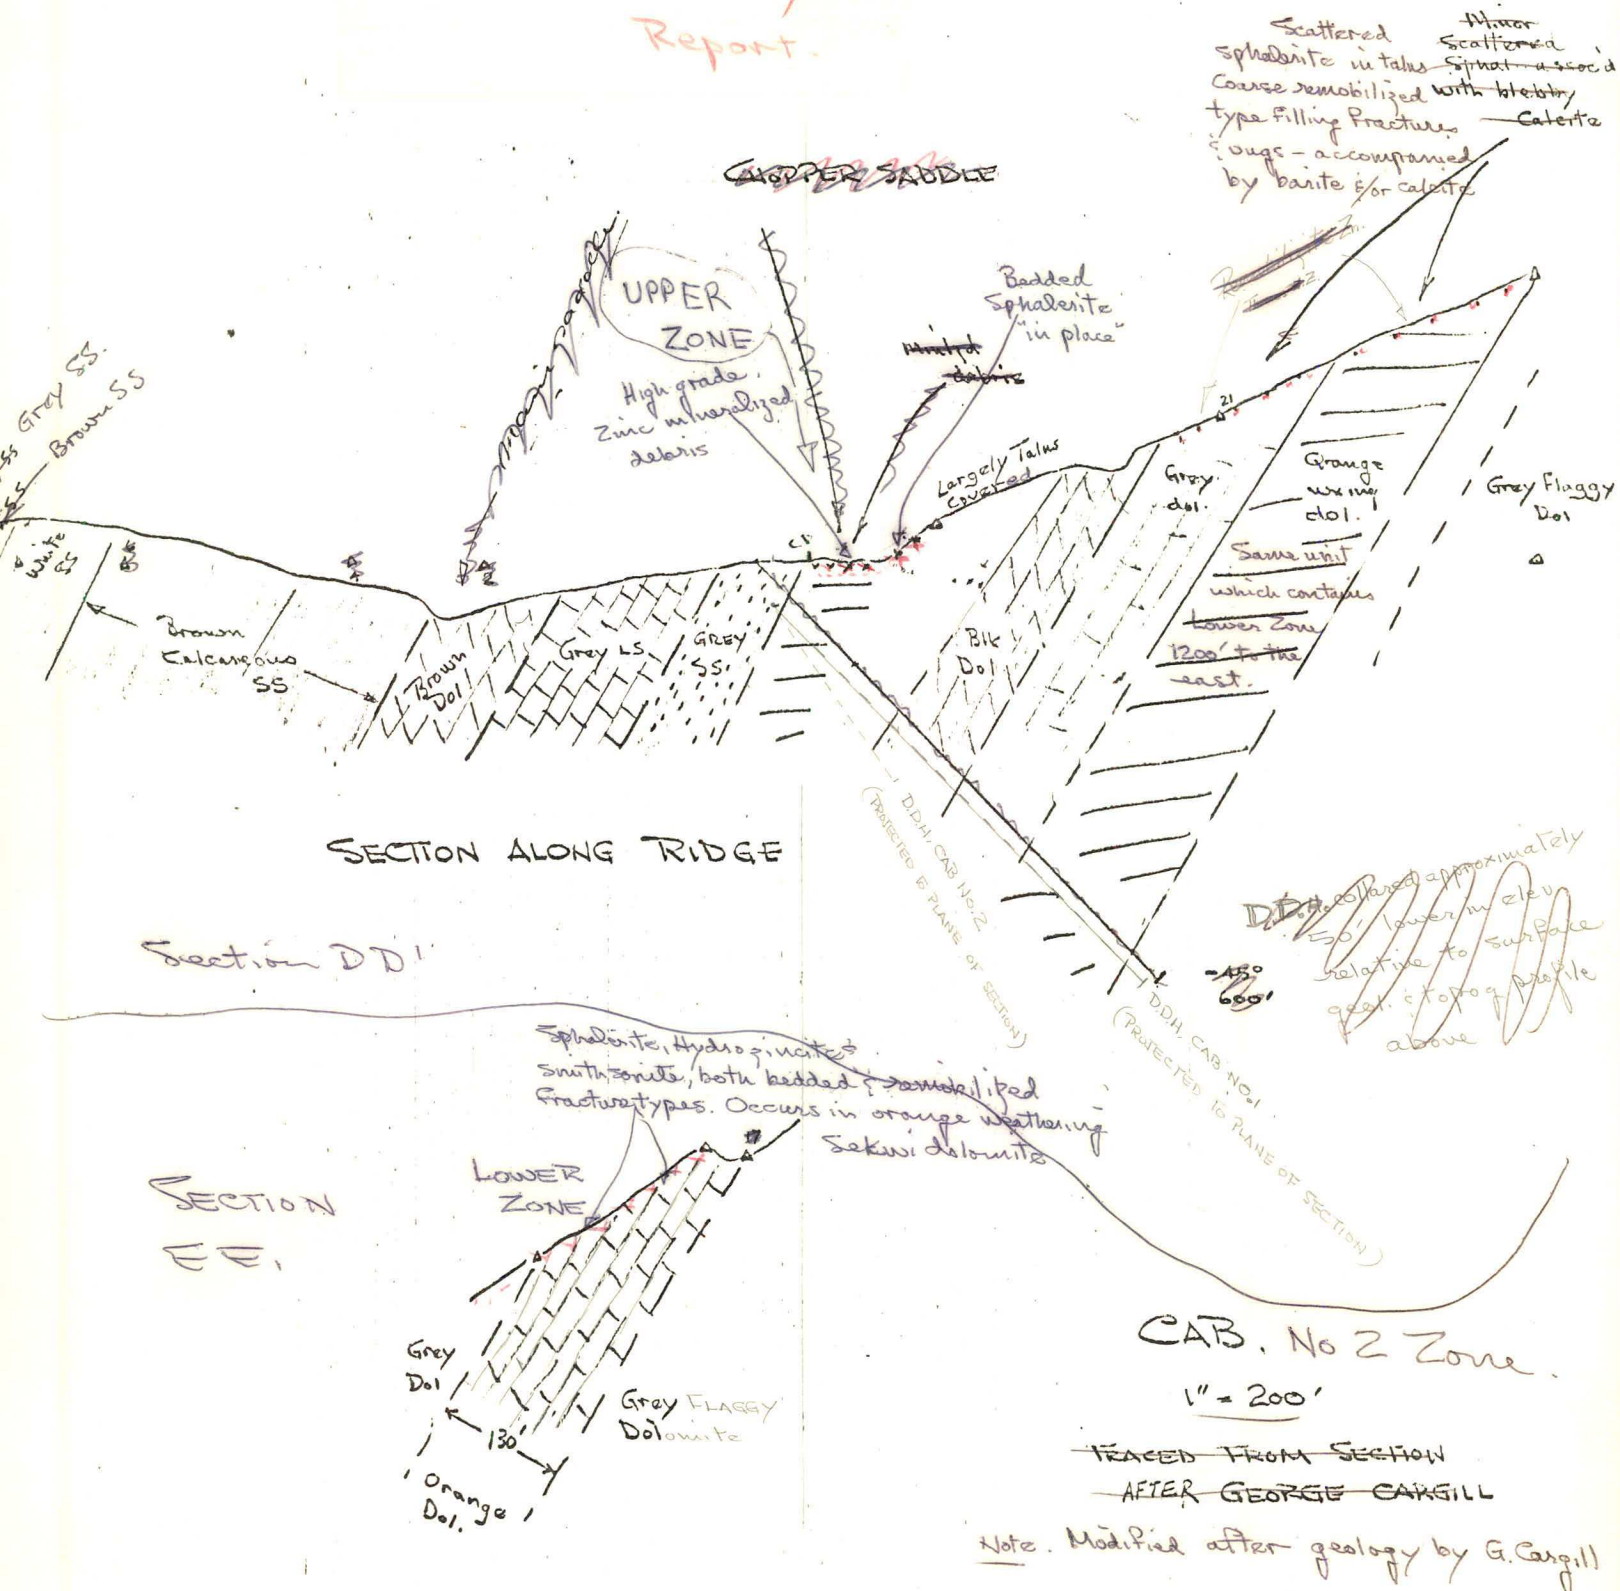 Report.
Scattered
sphalerite in talus
coarse remobilized
type filling fractures
& vugs - accompanied
by barite &/or calcite
Minor
Scattered
Sphal. assoc'd
with blebby
Calcite
CHOPPER SADDLE
UPPER
ZONE
High grade
Zinc mineralized
debris
Bedded
Sphalerite
"in place"
Minl'd
debris
Grey SS.
Brown SS
White
SS
Brown
Calcareous
SS
Brown
Dol
Grey LS.
GREY
SS.
Largely Talus
Covered
21
Blk
Dol
Grey
dol.
Orange
wxing
dol.
Same unit
which contains
Lower Zone
1200' to the
east.
Grey Flaggy
Dol
SECTION ALONG RIDGE
D.D.H. CAB No. 2
(PROJECTED TO PLANE OF SECTION)
D.D.H. CAB NO. 1
(PROJECTED TO PLANE OF SECTION)
-45°
600'
D.D.H. collared approximately
50' lower in elev
relative to surface
geol. & topog profile
above
Section DD'
Sphalerite, Hydrozincite &
Smithsonite, both bedded & remobilized
fracture types. Occurs in orange weathering
Sekwi dolomite
LOWER
ZONE
SECTION
EE,
Grey
Dol
130'
Orange
Dol.
Grey FLAGGY
Dolomite
CAB. No 2 Zone.
1" = 200'
TRACED FROM SECTION
AFTER GEORGE CARGILL
Note. Modified after geology by G. Cargill